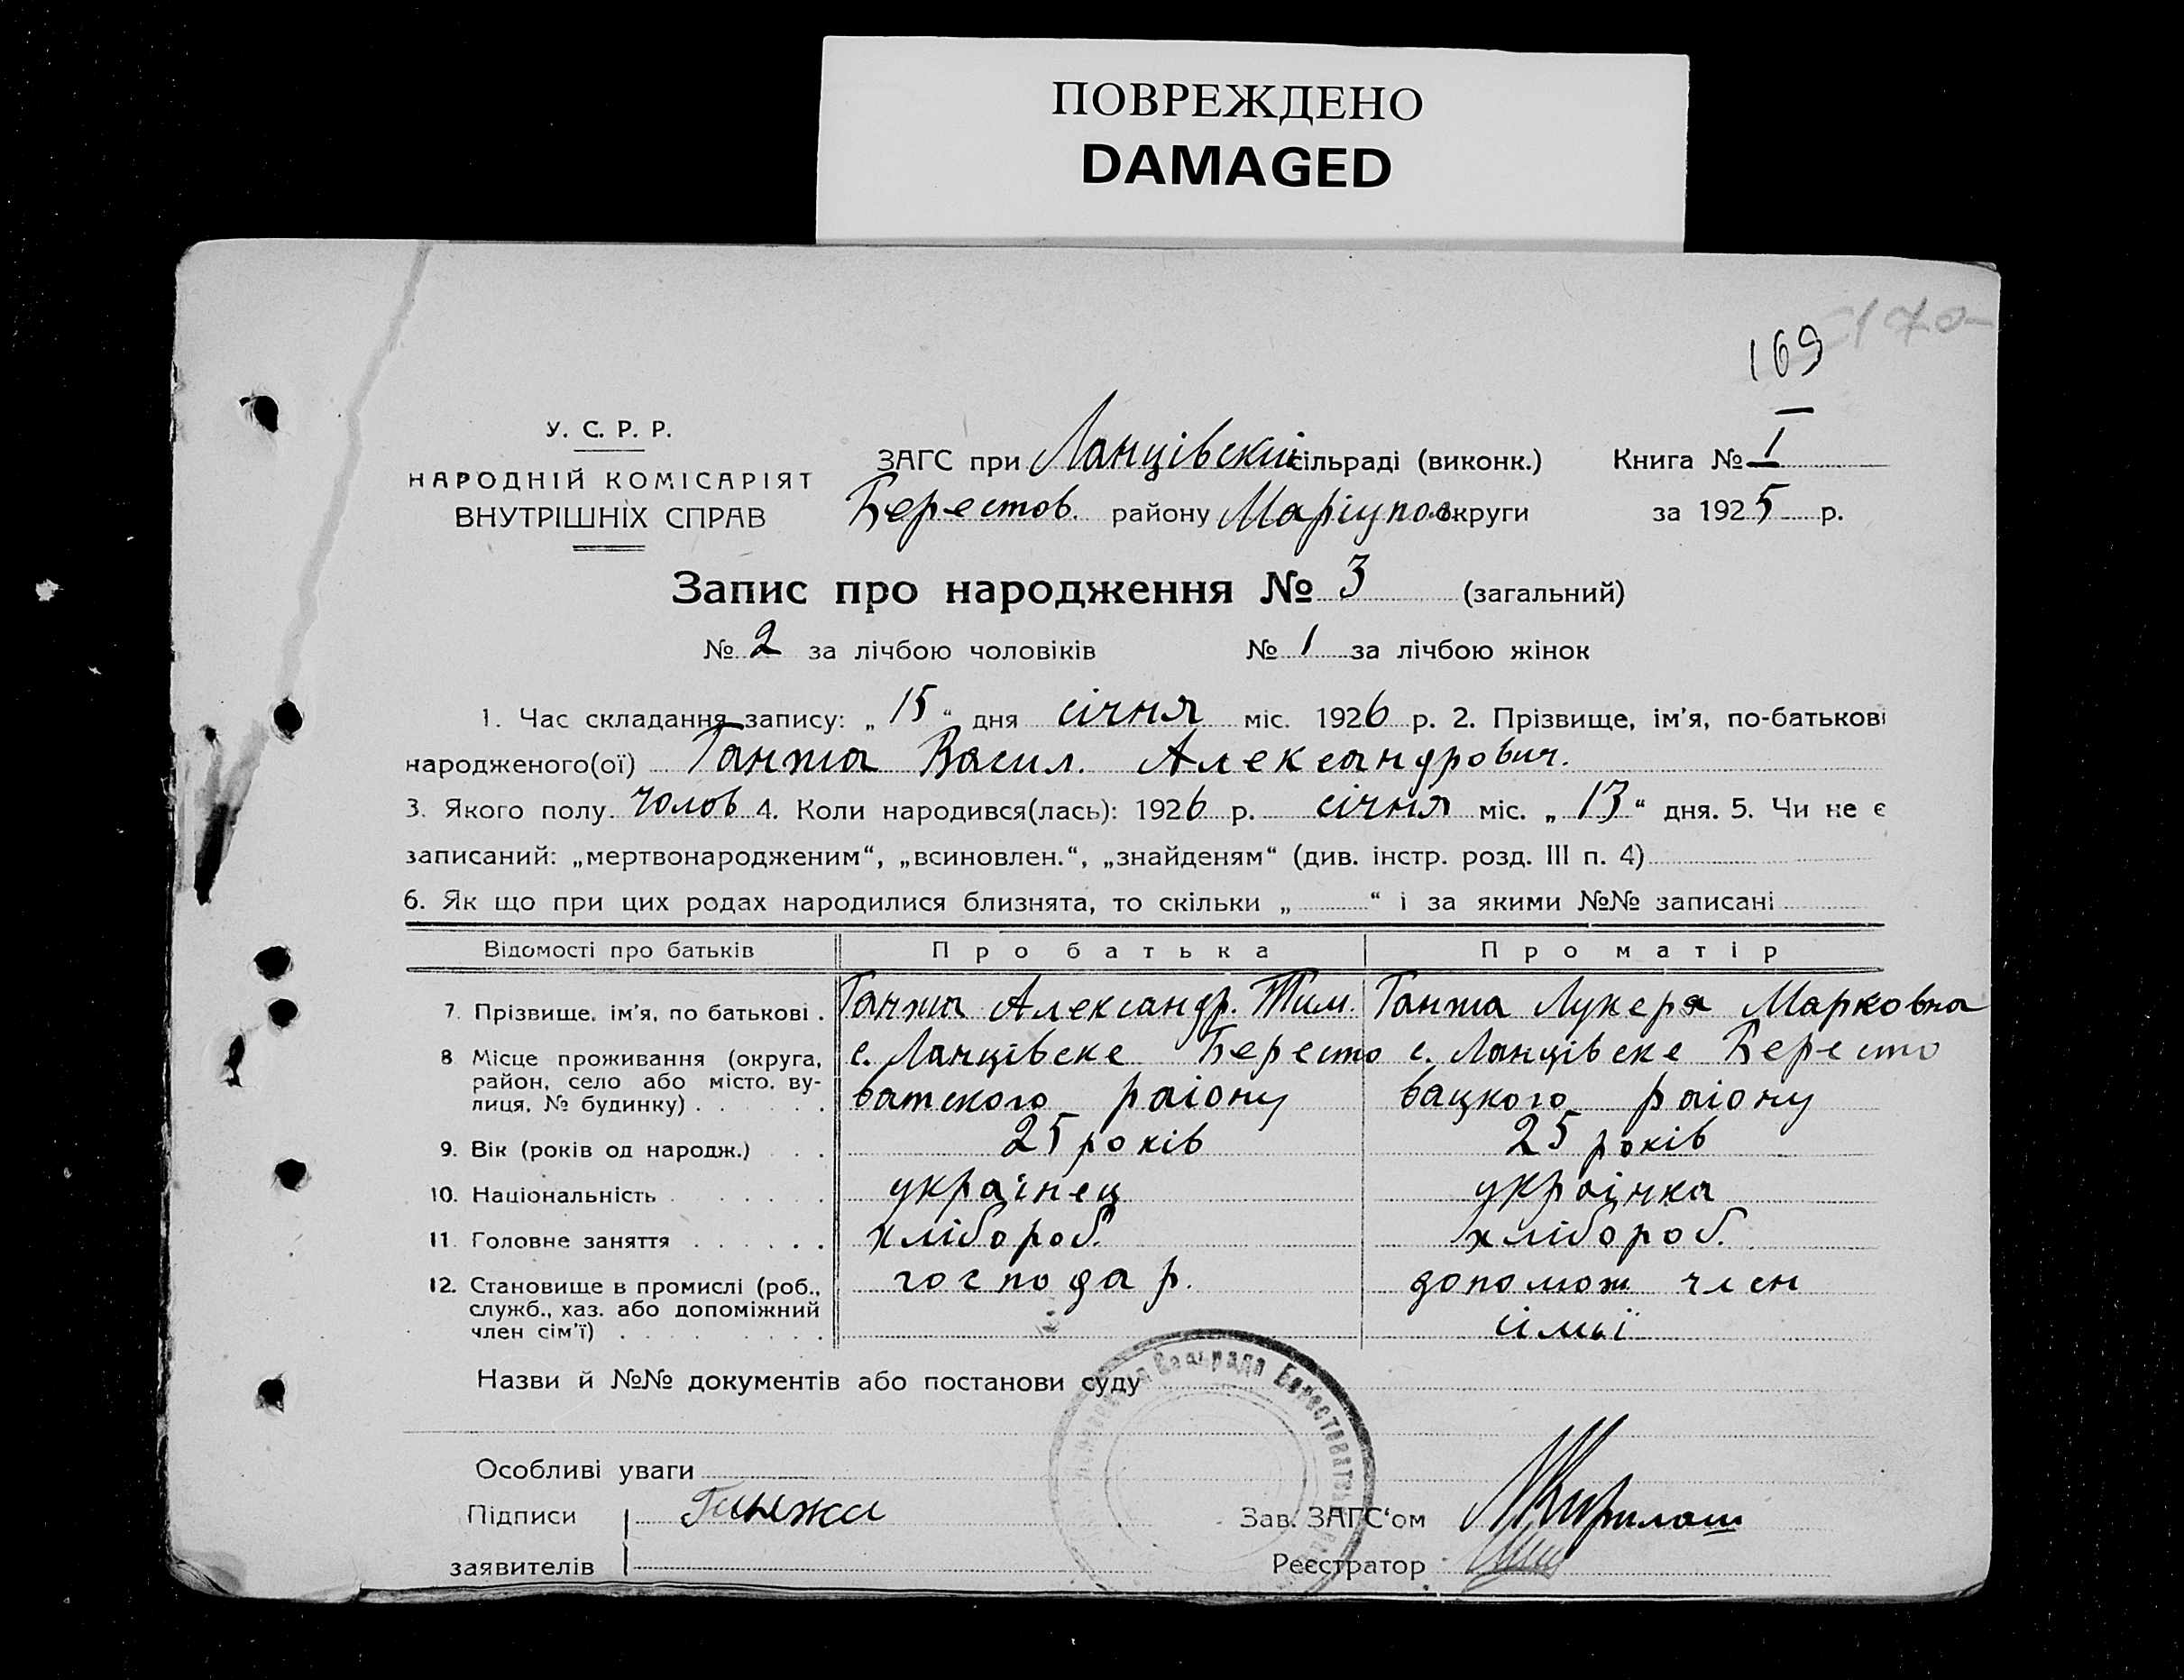 ПОВРЕЖДЕНО
DAMAGED
170
169
У. С. Р. Р.
НАРОДНІЙ КОМІСАРІЯТ
ВНУТРІШНІХ СПРАВ
ЗАГС при Ланцівскій сільраді (виконк.) Книга № I
Берестов. району Маріупол округи за 1925 р.
Запис про народження № 3 (загальний)
№ 2 за лічбою чоловіків № 1 за лічбою жінок
1. Час складання запису: „15“ дня січня міс. 1926 р. 2. Прізвище, ім'я, по-батькові
народженого(ої) Ганжа Васил. Александрович.
3. Якого полу чолов 4. Коли народився(лась): 1926 р. січня міс. „13“ дня. 5. Чи не є
записаний: „мертвонародженим“, „всиновлен.“, „знайденям“ (див. інстр. розд. III п. 4)
6. Як що при цих родах народилися близнята, то скільки „ “ і за якими №№ записані
Відомості про батьків Про батька Про матір
7. Прізвище, ім'я, по батькові . Ганжа Александр. Тим. Ганжа Лукеря Марковна
8 Місце проживання (округа, район, село або місто, вулиця, № будинку) с. Ланцівске Бересто с. Ланцівске Бересто
ватского раіону вацкого раіону
9. Вік (років од народж.) 25 років 25 років
10. Національність українец українка
11. Головне заняття хлібороб. хлібороб.
12. Становище в промислі (роб., господар. допомож член
служб., хаз. або допоміжний
член сім'ї) сімьї
Назви й №№ документів або постанови суду
Особливі уваги
Підписи Ганжа Зав. ЗАГС'ом
заявителів Реєстратор